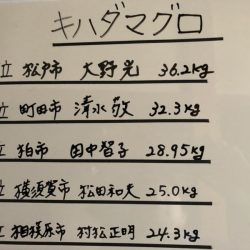 キハダマグロ
位 松戸市 大野光 36.2kg
位 町田市 清水敬 32.3kg
位 柏市 田中智子 28.95kg
位 横須賀市 松田和夫 25.0kg
位 相模原市 村松正明 24.3kg